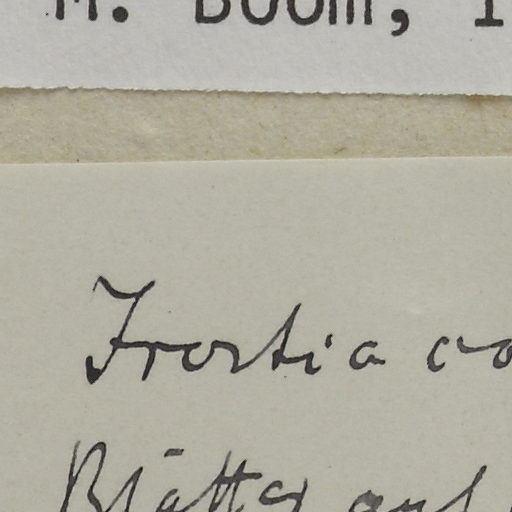 M. Boom, 1
Frostia co
Blätter auf